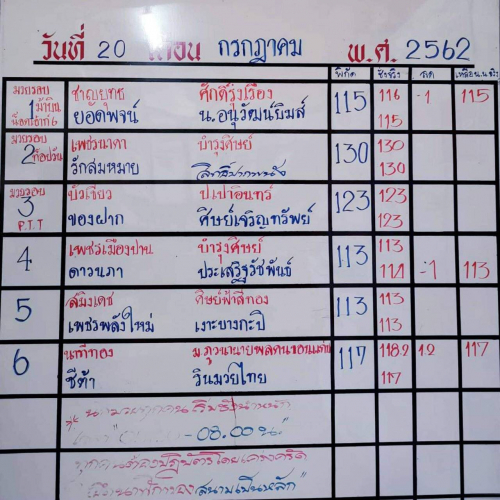 วันที่ 20 เดือน กรกฎาคม พ.ศ. 2562
พิกัด ชั่งจริง ลด เหลือน.น.ชั่ง
มวยรอบ ชาญยุทธ ศักดิ์รุ่งเรือง 115 116 -1 115
1 ยอดพจน์ น.อนุวัฒน์ยิมส์ 115
มวยรอบ เพชรนาคา บำรุงศิษย์ 130 130
2 รักสมหมาย 130
มวยรอบ บัวเขียว ป.เปาอินทร์ 123 123
3 ของฝาก ศิษย์เจริญทรัพย์ 123
P.T.T
4 เพชรเมืองปาน บำรุงศิษย์ 113 113
ดาวนภา ประเสริฐวัชพันธ์ 114 -1 113
5 สมิงเดช ศิษย์ฟ้าสีทอง 113 113
เพชรพลังใหม่ เงาะบางกะปิ 113
6 นาทีทอง 117 118.2 1.2 117
ซีต้า วินมวยไทย 117
-08.00น"
ทุกคนต้องปฏิบัติโดยเคร่งครัด
สนามเป็นหลัก"